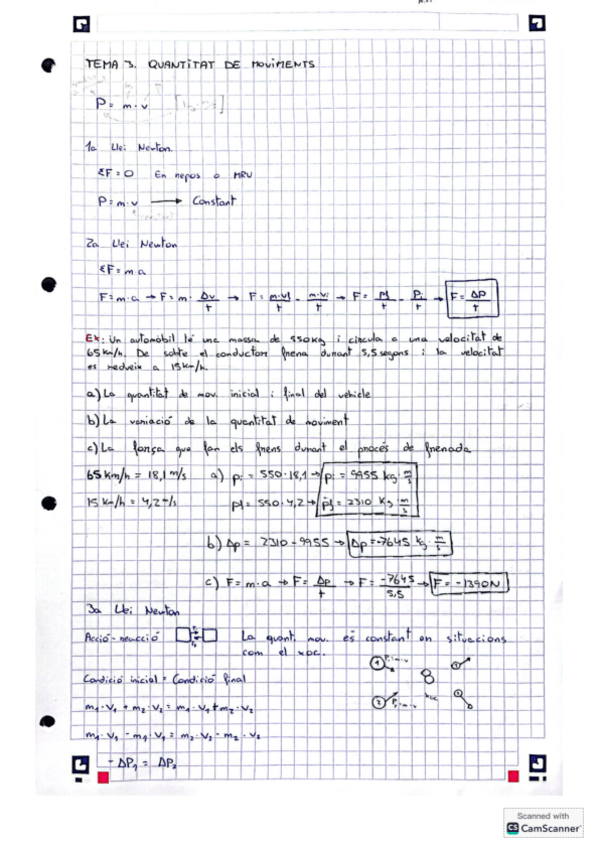 TEMA 3. QUANTITAT DE MOVIMENTS
P = m·v
1a Llei Newton
ΣF = 0 En repos o MRU
P = m·v → Constant
2a Llei Newton
ΣF = m·a
F = m·a → F = m· Δv/t → F = m·vf/t - m·vi/t → F = Pf/t - Pi/t → F = ΔP/t
Ex: Un automòbil té una massa de 550kg i circula a una velocitat de
65km/h. De sobte el conductor frena durant 5,5 segons i la velocitat
es redueix a 15km/h.
a) La quantitat de mov. inicial i final del vehicle
b) La variació de la quantitat de moviment
c) La força que fan els frens durant el procés de frenada
65 km/h = 18,1 m/s a) pi = 550·18,1 → pi = 9955 kg· m/s
15 km/h = 4,2 m/s pf = 550·4,2 → pf = 2310 kg· m/s
b) Δp = 2310 - 9955 → Δp = -7645 kg· m/s
c) F = m·a → F = Δp/t → F = -7645/5,5 → F = -1390N
3a Llei Newton
Acció-reacció La quant. mov. és constant en situacions
com el xoc.
Condició inicial = Condició final
m1·V1 + m2·V2 = m1·V1 + m2·V2
m1·V1 - m1·V1 = m2·V2 - m2·V2
-ΔP1 = ΔP2
Scanned with
CS CamScanner